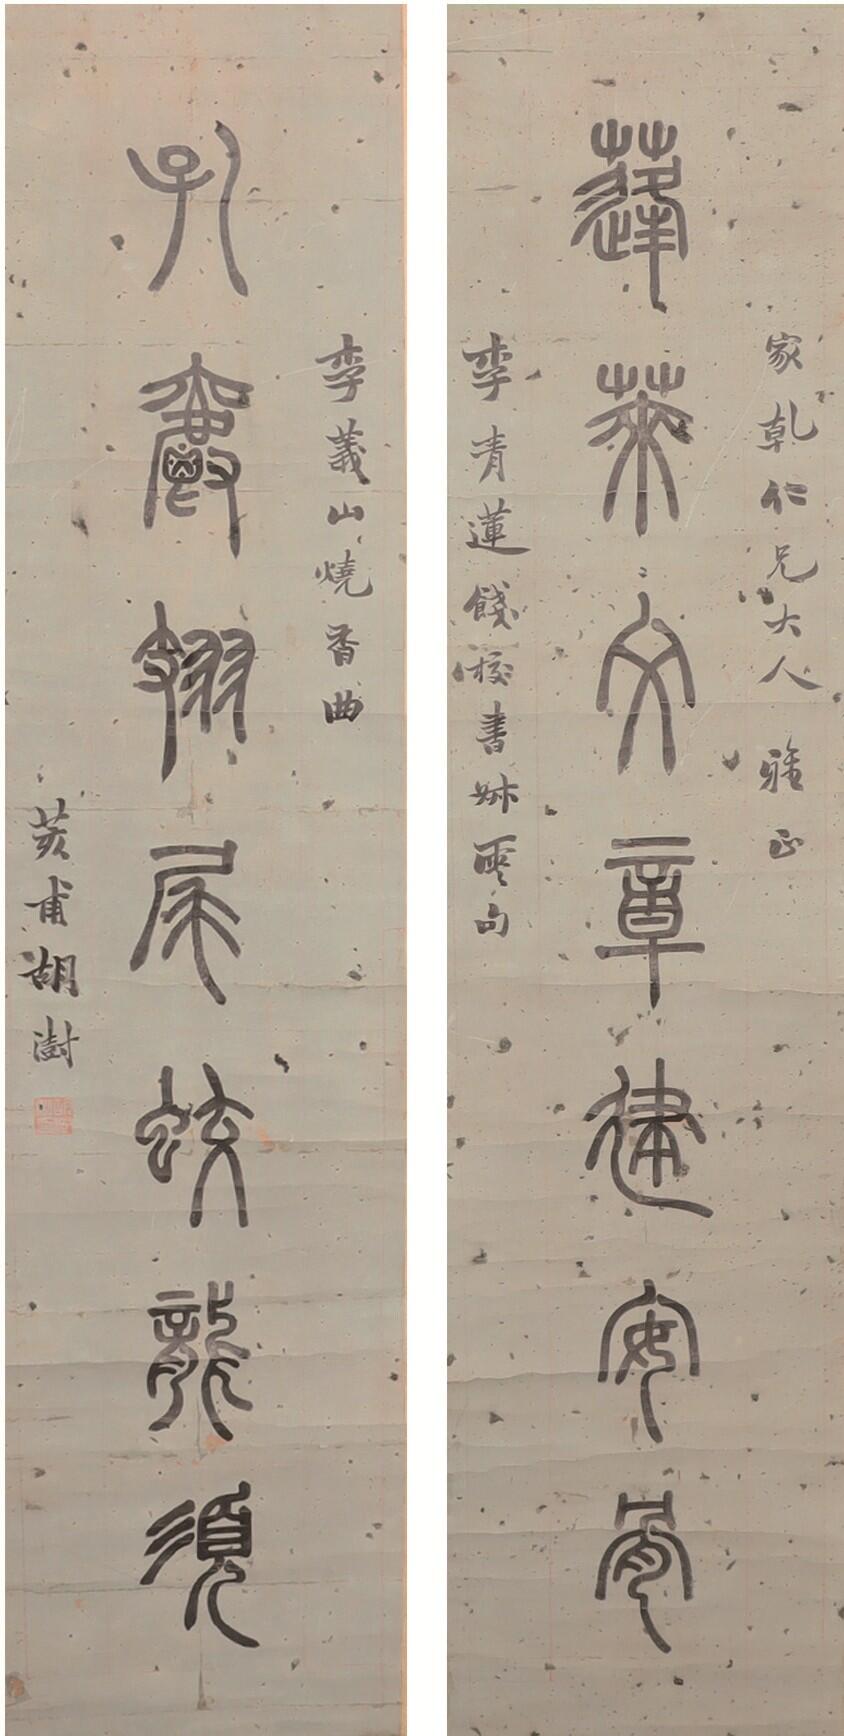 家乾仁兄大人 雅正
蓬萊文章建安骨
李青蓮餞校書叔雲句
李義山燒香曲
孔雀翅尾蛟龍須
荄甫胡澍